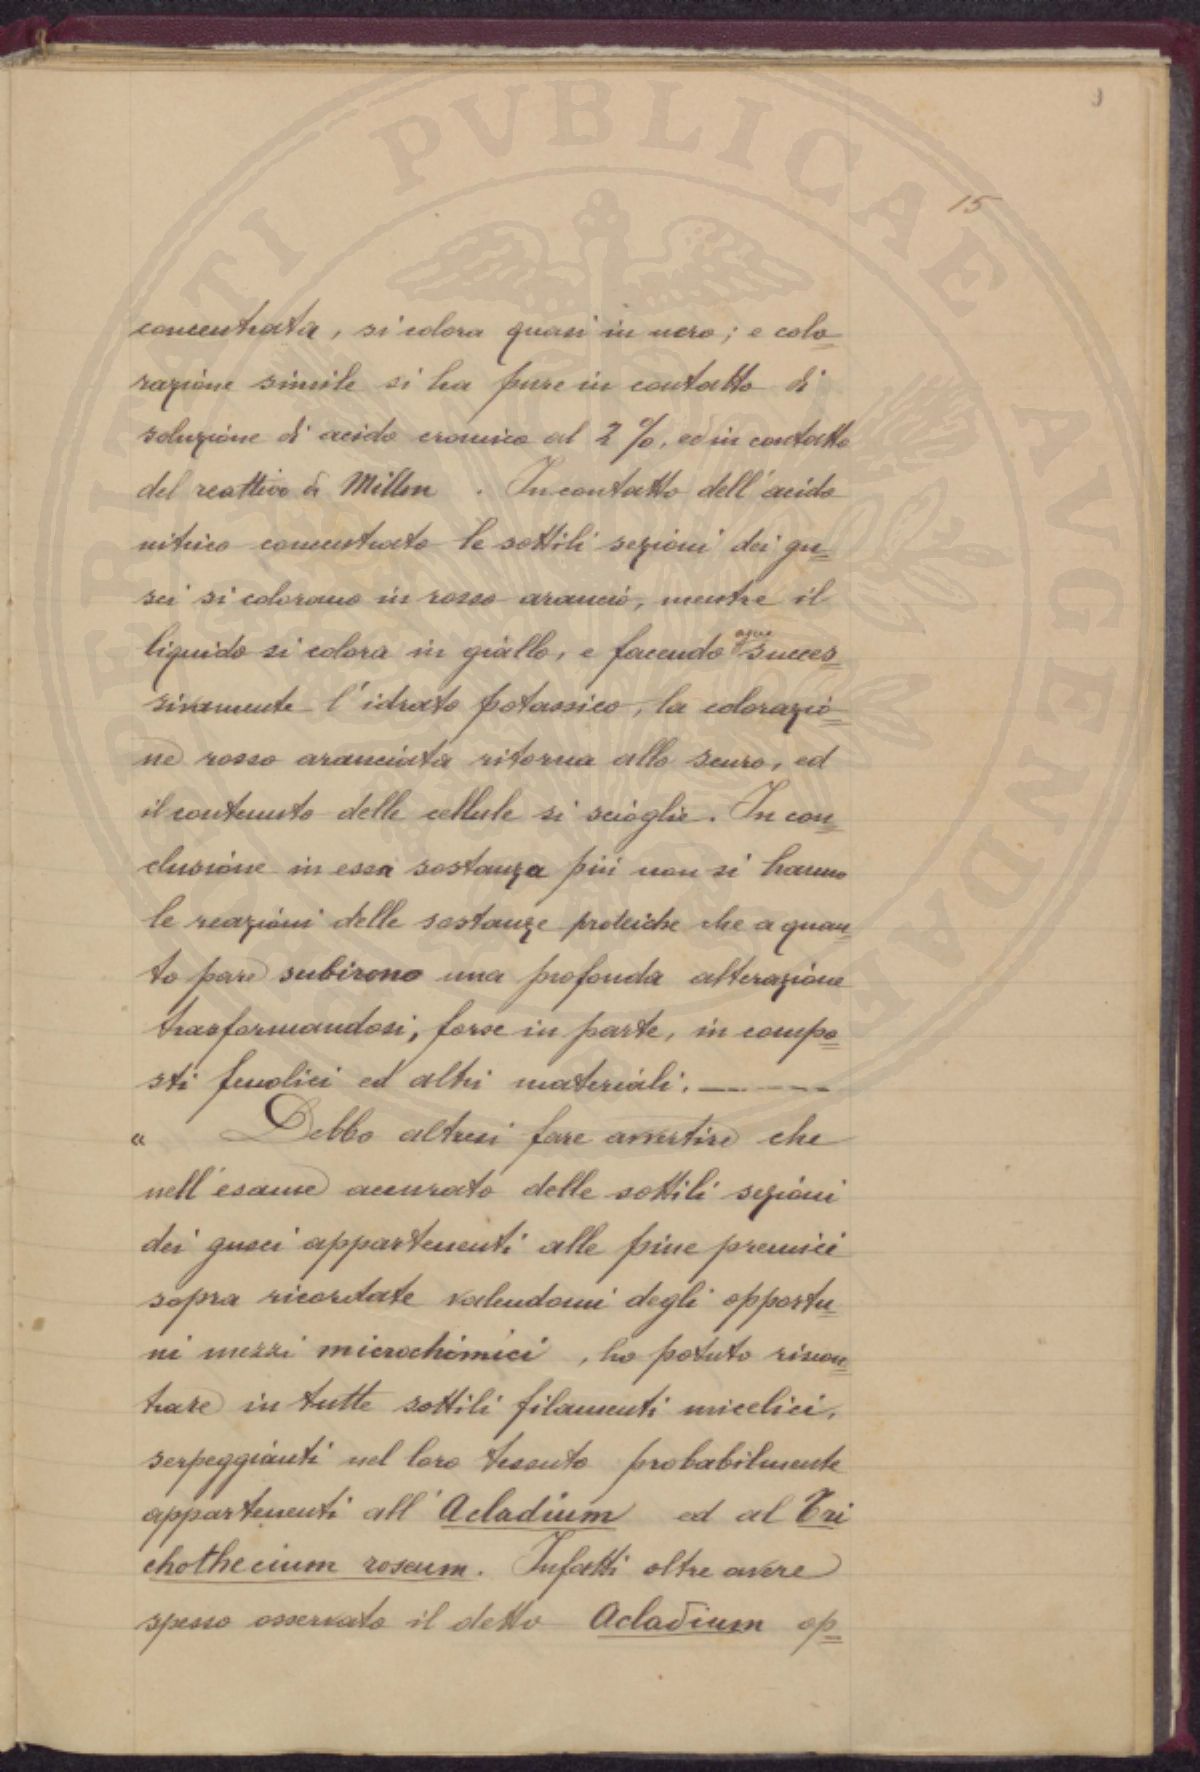 PROSPERITATI PVBLICAE AVGENDAE
9
15
concentrata, si colora quasi in nero; e colo=
razione simile si ha pure in contatto di
soluzione di acido cromico al 2 %, ed in contatto
del reattivo di Millon . In contatto dell'acido
nitrico concentrato le sottili sezioni dei gu=
sci si colorano in rosso arancio, mentre il
liquido si colora in giallo, e facendo agire succes=
sivamente l'idrato potassico, la colorazio=
ne rosso aranciata ritorna allo scuro, ed
il contenuto delle cellule si scioglie. In con=
clusione in essa sostanza più non si hanno
le reazioni delle sostanze proteiche che a quan=
to pare subirono una profonda alterazione
trasformandosi, forse in parte, in compo=
sti fenolici ed altri materiali. ————
" Debbo altresì fare avvertire che
nell'esame accurato delle sottili sezioni
dei gusci appartenenti alle pine premici
sopra ricordate valendomi degli opportu=
ni mezzi microchimici , ho potuto riscon=
trare in tutte sottili filamenti micelici,
serpeggianti nel loro tessuto probabilmente
appartenenti all'Acladium ed al Tri
chothecium roseum. Infatti oltre avere
spesso osservato il detto Acladium op=